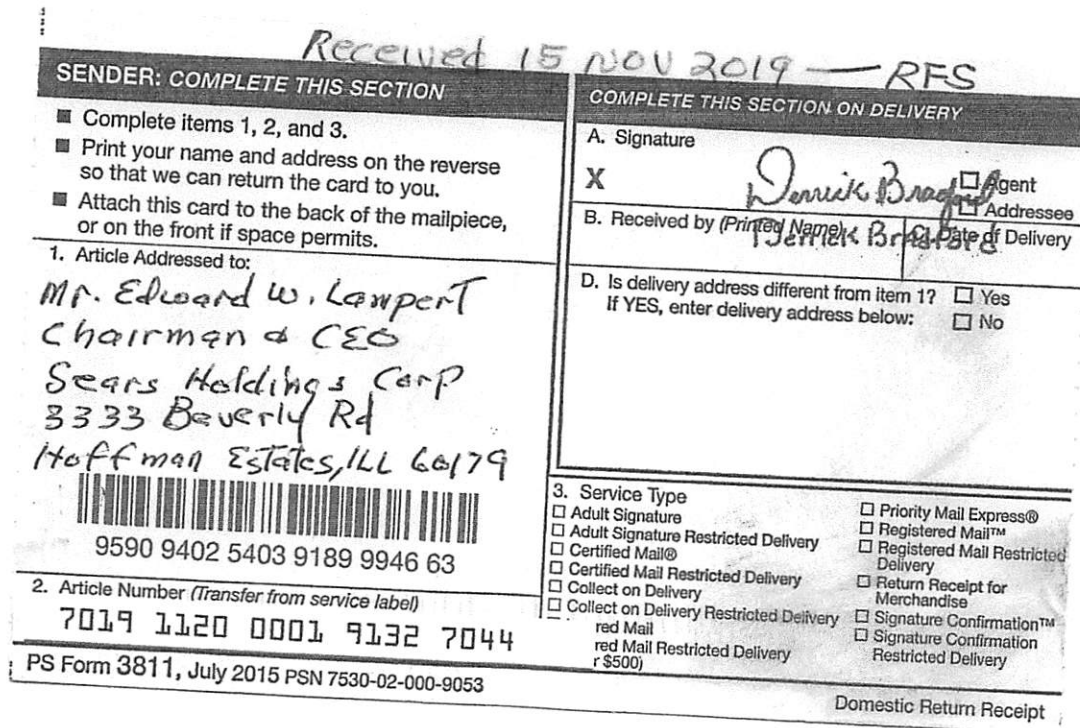 Received 15 NOV 2019 — RFS
SENDER: COMPLETE THIS SECTION
■ Complete items 1, 2, and 3.
■ Print your name and address on the reverse
so that we can return the card to you.
■ Attach this card to the back of the mailpiece,
or on the front if space permits.
1. Article Addressed to:
Mr. Edward W. Lampert
Chairman & CEO
Sears Holdings Corp
3333 Beverly Rd
Hoffman Estates, ILL 60179
9590 9402 5403 9189 9946 63
2. Article Number (Transfer from service label)
7019 1120 0001 9132 7044
PS Form 3811, July 2015 PSN 7530-02-000-9053
COMPLETE THIS SECTION ON DELIVERY
A. Signature
X Derrick Bradford
☐ Agent
☐ Addressee
B. Received by (Printed Name)
Derrick Bradford
C. Date of Delivery
D. Is delivery address different from item 1? ☐ Yes
If YES, enter delivery address below: ☐ No
3. Service Type
☐ Adult Signature
☐ Adult Signature Restricted Delivery
☐ Certified Mail®
☐ Certified Mail Restricted Delivery
☐ Collect on Delivery
☐ Collect on Delivery Restricted Delivery
red Mail
red Mail Restricted Delivery
r $500)
☐ Priority Mail Express®
☐ Registered Mail™
☐ Registered Mail Restricted
Delivery
☐ Return Receipt for
Merchandise
☐ Signature Confirmation™
☐ Signature Confirmation
Restricted Delivery
Domestic Return Receipt